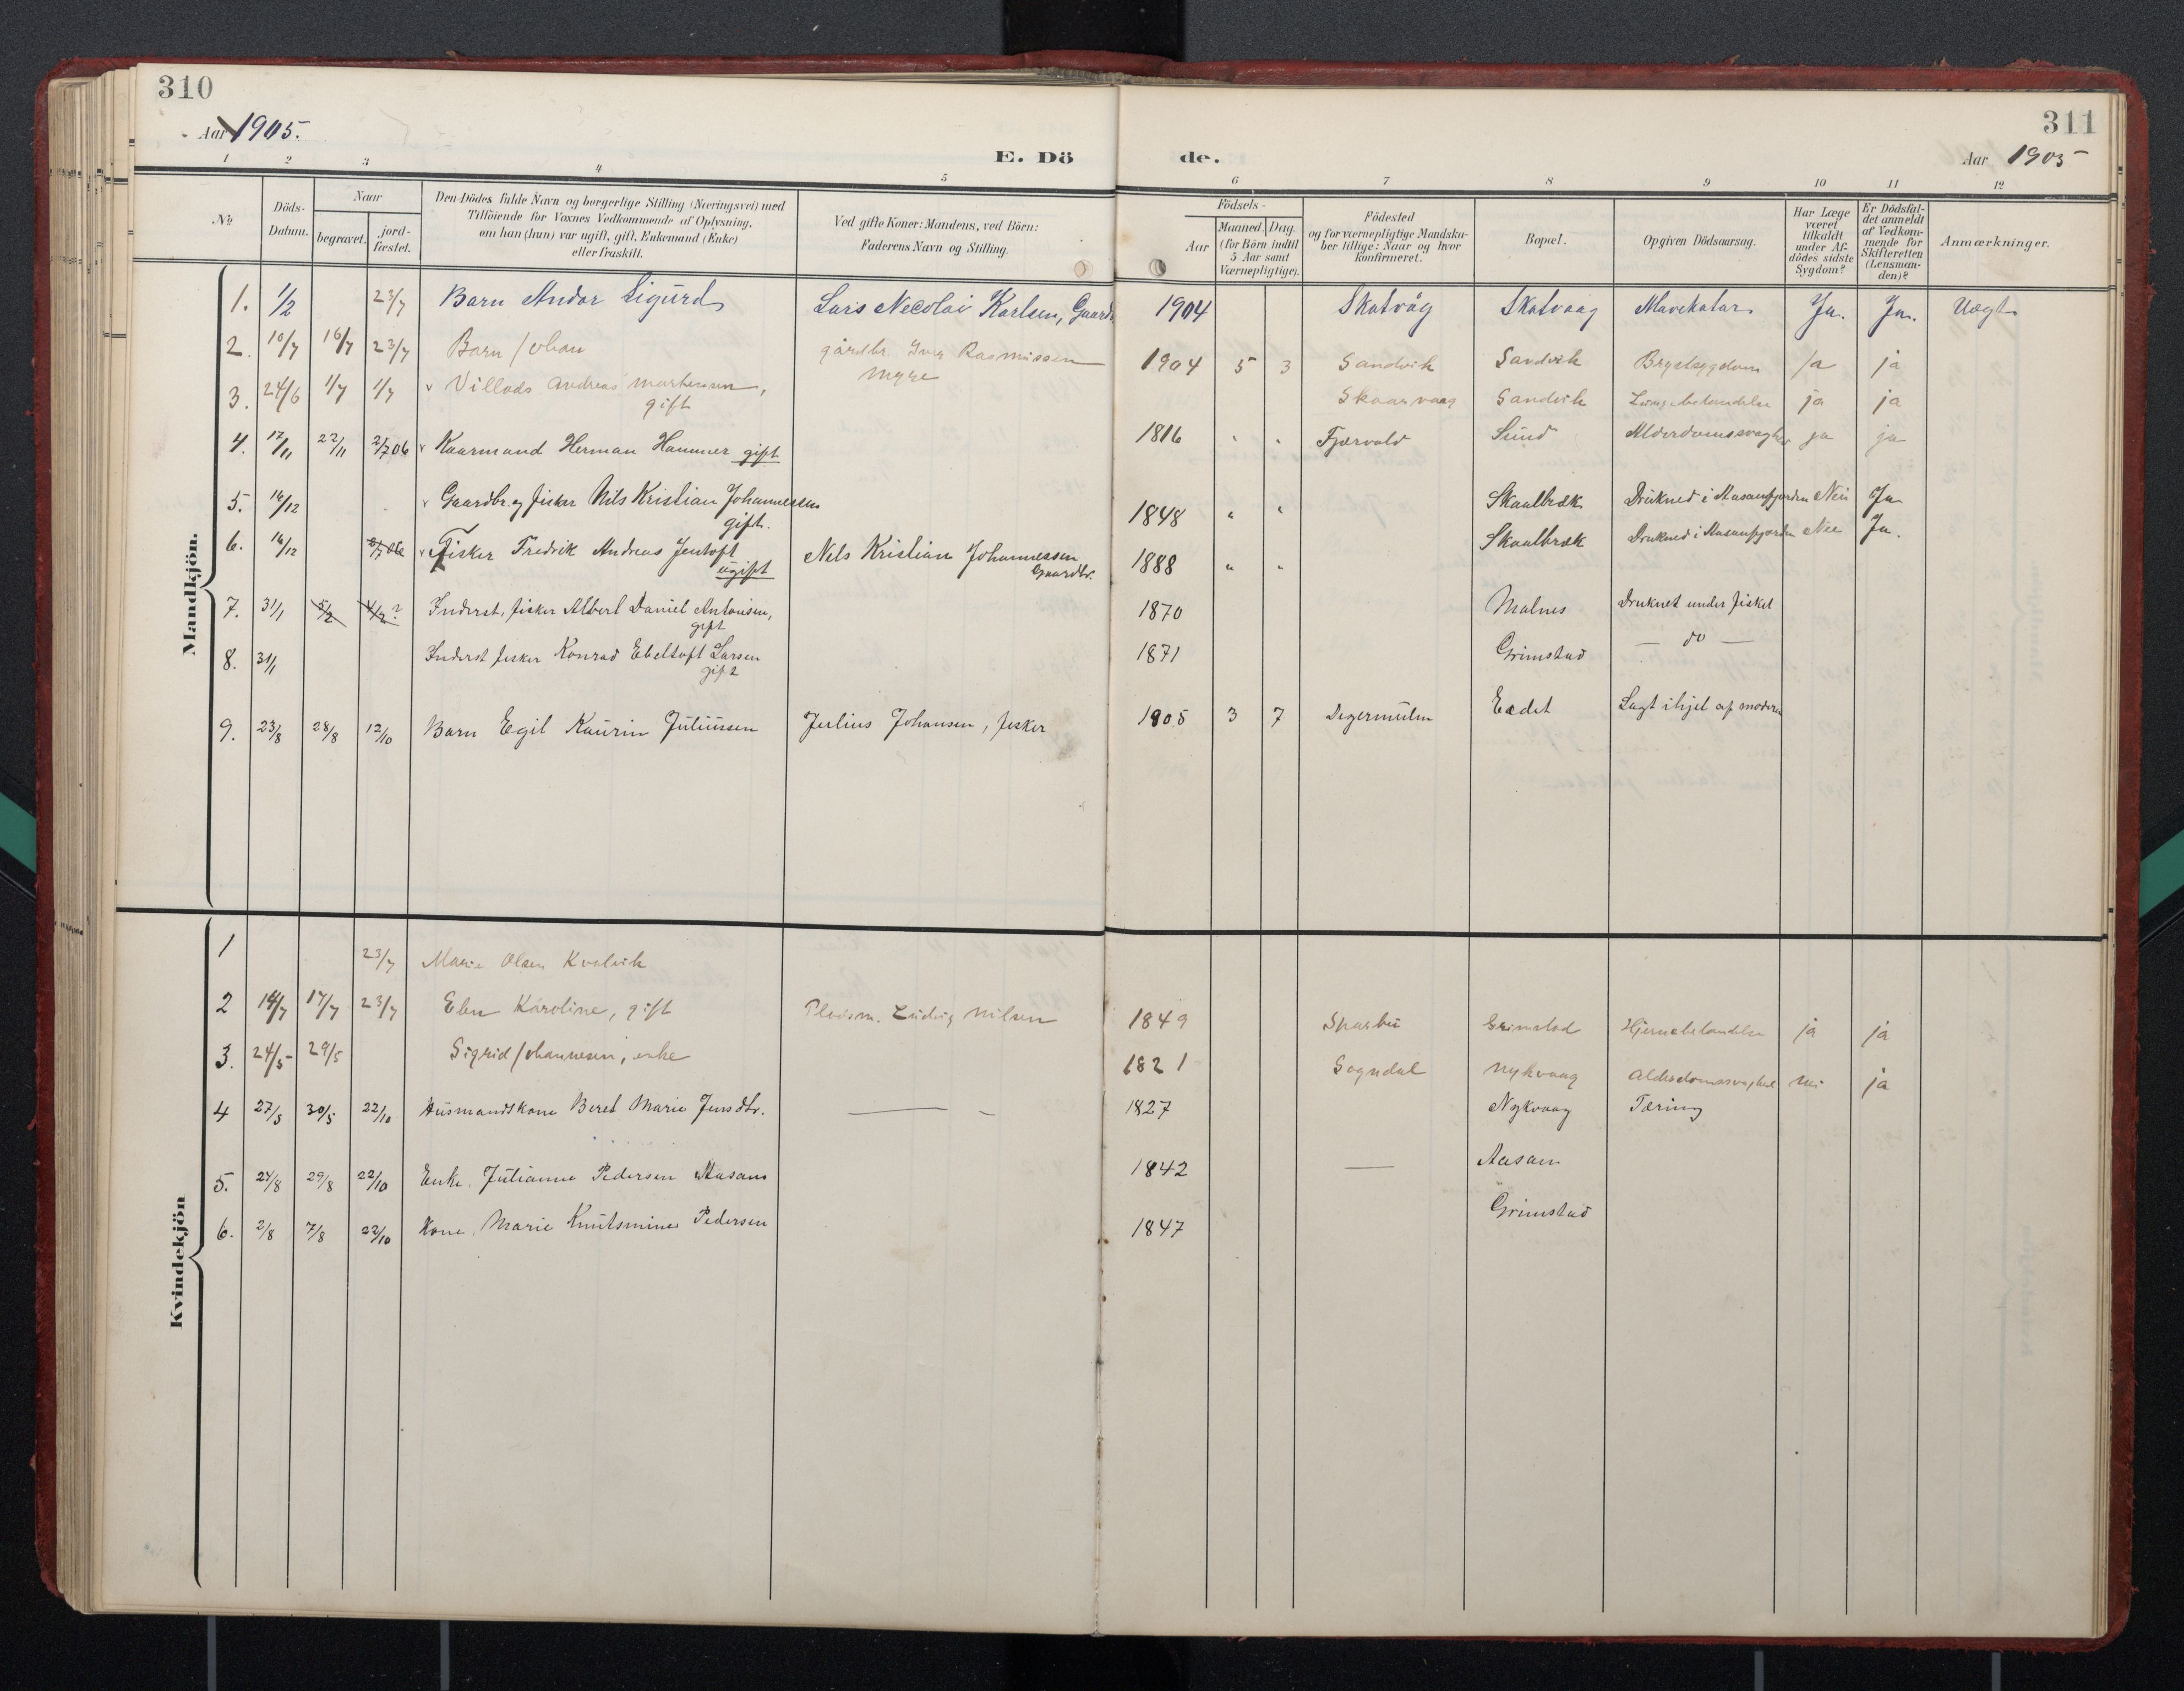 310
Aar 1905.
E. Dö
de.
311
Aar 1905
1 2 3 4 5 6 7 8 9 10 11 12
No
Döds-Datum.
Naar
begravet.
jord-fæstet.
Den Dödes fulde Navn og borgerlige Stilling (Næringsvei) med
Tilföiende for Voxnes Vedkommende af Oplysning,
om han (hun) var ugift, gift, Enkemand (Enke)
eller fraskilt.
Ved gifte Koner: Mandens, ved Börn:
Faderens Navn og Stilling.
Födsels-
Aar
Maaned.
Dag.
(for Börn indtil
5 Aar samt
Værnepligtige).
Födested
og for værnepligtige Mandska-
ber tillige: Naar og hvor
konfirmeret.
Bopæl.
Opgiven Dödsaarsag.
Har Læge
været
tilkaldt
under Af-
dödes sidste
Sygdom?
Er Dödsfal-
det anmeldt
af Vedkom-
mende for
Skifteretten
(Lensman-
den)?
Anmærkninger.
Mandkjön.
1. 1/2 23/7 Barn Andor Sigurd Lars Necolai Karlsen, Gaardr 1904 Skatvåg Skatvaag Mavekatar Ja. Ja. Uægt
2. 10/7 16/7 23/7 Barn Johan gårdbr. Iver Rasmussen
Myre 1904 5 3 Sandvik Sandvik Brystsygdom ja ja
3. 24/6 1/7 1/7 v Villads Andreas Martinsen,
gift Skaarvaag Sandvik Lungebetændelse ja ja
4. 12/11 22/11 2/7 06 v Kaarmand Herman Hammer gift 1816 " " Fjærvold Sund Alderdomssvaghed ja ja
5. 14/12 v Gaardbr. og fisker Nils Kristian Johannessen
gift. 1848 " " Skaalbræk Drukned i Aasanfjorden Nei Ja
6. 14/12 2/7 06 v Fisker Fredrik Andreas Jentoft
ugift Nils Kristian Johannessen
Gaardbr. 1888 " " Skaalbræk Drukned i Aasanfjorden Nei Ja.
7. 31/1 5/2 4/2? Inderst, fisker Albert Daniel Antonisen,
gift 1870 Malnes Druknet under fisket
8. 31/1 Inderst fisker Konrad Ebeltoft Larsen
gift 1871 Grimstad — do —
9. 23/8 28/8 12/10 Barn Egil Kaurin Juliussen Julius Johansen, fisker 1905 3 7 Digermulen Eedet Lagt ihjel af moderen
Kvindekjön
1 23/7 Marie Olsen Kvalvik
2 14/7 17/7 23/7 Elen Karoline, gift Pladsm. Ludvig Nilsen 1849 Sparbu Grimstad Hjernebetændelse ja ja
3. 24/5 29/5 Sigrid Johannesen, enke 1821 Sogndal Nykvaag Alderdomssvaghed nei ja
4 27/5 30/5 22/10 Husmandskone Beret Marie Jensdtr. — - 1827 Nykvaag Tæring
5. 24/8 29/8 22/10 Enke, Julianna Pedersen Aasan 1842 — Aasan
6. 2/8 7/8 22/10 Kone, Marie Knutsmine Pedersen 1847 Grimstad